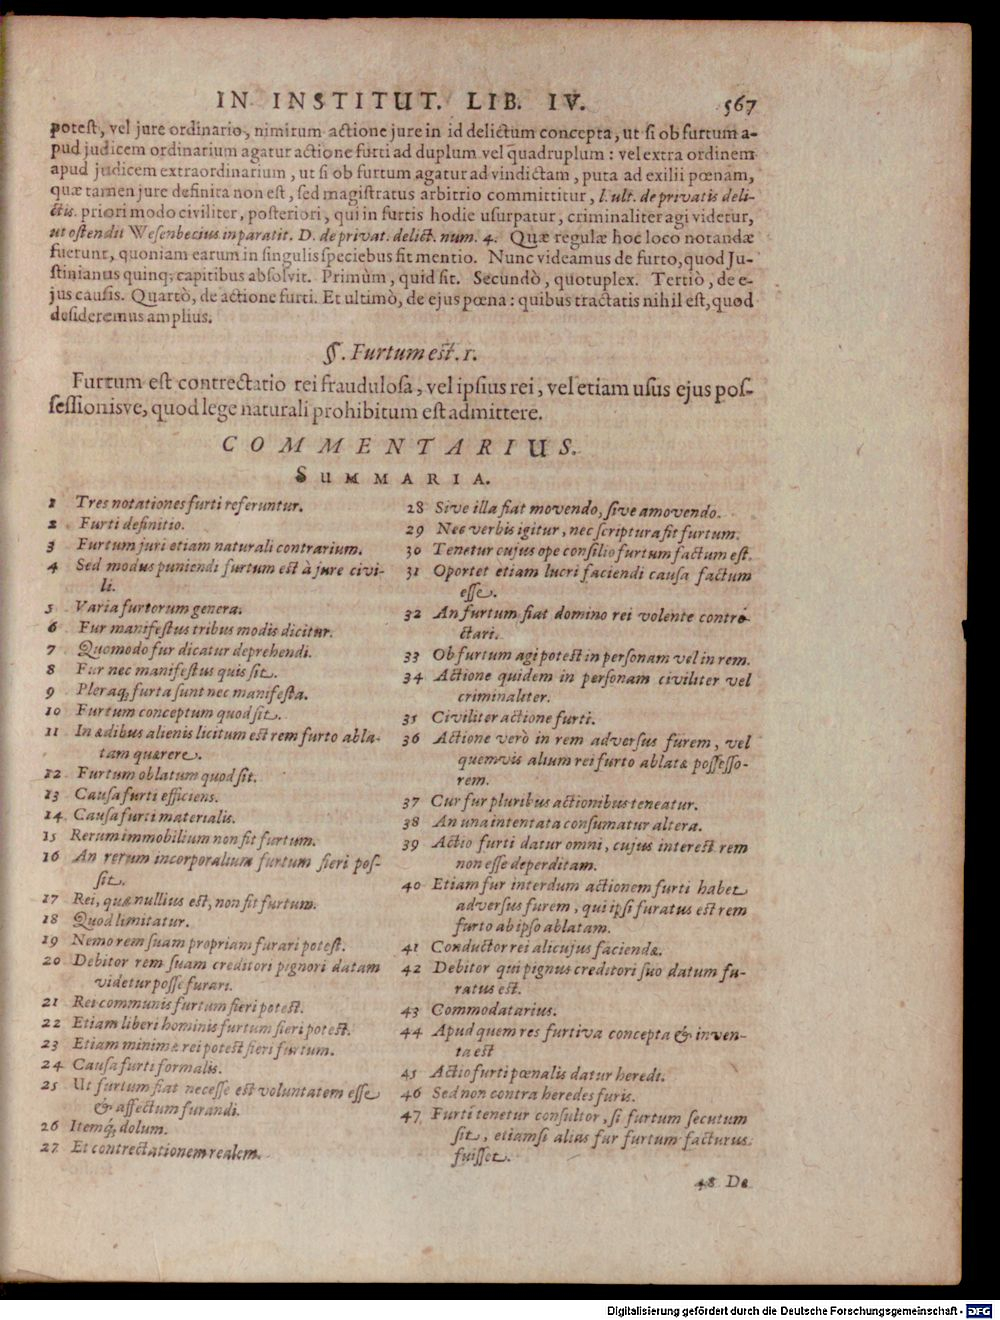 IN INSTITUT. LIB. IV. 567
potest, vel jure ordinario, nimirum actione jure in id delictum concepta, ut si ob furtum a-
pud judicem ordinarium agatur actione furti ad duplum vel quadruplum : vel extra ordinem
apud judicem extraordinarium, ut si ob furtum agatur ad vindictam, puta ad exilii pœnam,
quæ tamen jure definita non est, sed magistratus arbitrio committitur, l. ult. de privatis deli-
ctis. priori modo civiliter, posteriori, qui in furtis hodie usurpatur, criminaliter agi videtur,
ut ostendit Wesenbecius in paratit. D. de privat. delict. num. 4. Quæ regulæ hoc loco notandæ
fuerunt, quoniam earum in singulis speciebus fit mentio. Nunc videamus de furto, quod Ju-
stinianus quinq; capitibus absolvit. Primùm, quid sit. Secundò, quotuplex. Tertiò, de e-
jus causis. Quartò, de actione furti. Et ultimò, de ejus pœna : quibus tractatis nihil est, quod
desideremus amplius.
§. Furtum est. 1.
Furtum est contrectatio rei fraudulosa, vel ipsius rei, vel etiam usus ejus pos-
sessionisve, quod lege naturali prohibitum est admittere.
COMMENTARIUS.
SUMMARIA.
1 Tres notationes furti referuntur.
2 Furti definitio.
3 Furtum juri etiam naturali contrarium.
4 Sed modus puniendi furtum est à jure civi-
li.
5 Varia furtorum genera.
6 Fur manifestus tribus modis dicitur.
7 Quomodo fur dicatur deprehendi.
8 Fur nec manifestus quis sit.
9 Pleraq; furta sunt nec manifesta.
10 Furtum conceptum quod sit.
11 In ædibus alienis licitum est rem furto abla-
tam quærere.
12 Furtum oblatum quod sit.
13 Causa furti efficiens.
14 Causa furti materialis.
15 Rerum immobilium non fit furtum.
16 An rerum incorporalium furtum fieri pos-
sit.
17 Rei, quæ nullius est, non fit furtum.
18 Quod limitatur.
19 Nemo rem suam propriam furari potest.
20 Debitor rem suam creditori pignori datam
videtur posse furari.
21 Rei communis furtum fieri potest.
22 Etiam liberi hominis furtum fieri potest.
23 Etiam minimæ rei potest fieri furtum.
24 Causa furti formalis.
25 Ut furtum fiat necesse est voluntatem esse
& affectum furandi.
26 Itemq; dolum.
27 Et contrectationem realem.
28 Sive illa fiat movendo, sive amovendo.
29 Nec verbis igitur, nec scriptura fit furtum.
30 Tenetur cujus ope consilio furtum factum est.
31 Oportet etiam lucri faciendi causa factum
esse.
32 An furtum fiat domino rei volente contre-
ctari.
33 Ob furtum agi potest in personam vel in rem.
34 Actione quidem in personam civiliter vel
criminaliter.
35 Civiliter actione furti.
36 Actione verò in rem adversus furem, vel
quemvis alium rei furto ablatæ possesso-
rem.
37 Cur fur pluribus actionibus teneatur.
38 An una intentata consumatur altera.
39 Actio furti datur omni, cujus interest rem
non esse deperditam.
40 Etiam fur interdum actionem furti habet
adversus furem, qui ipsi furatus est rem
furto ab ipso ablatam.
41 Conductor rei alicujus faciendæ.
42 Debitor qui pignus creditori suo datum fu-
ratus est.
43 Commodatarius.
44 Apud quem res furtiva concepta & inven-
ta est
45 Actio furti pœnalis datur heredi.
46 Sed non contra heredes furis.
47 Furti tenetur consultor, si furtum secutum
sit, etiamsi alias fur furtum facturus
fuisset.
48 De
Digitalisierung gefördert durch die Deutsche Forschungsgemeinschaft - DFG